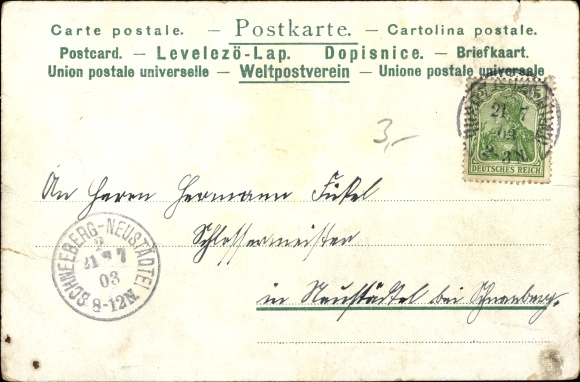 Carte postale. — Postkarte. — Cartolina postale.
Postcard. — Levelezö-Lap. Dopisnice. — Briefkaart.
Union postale universelle — Weltpostverein — Unione postale universale
21 7
03
3 N
DEUTSCHES REICH
3,-
An Herrn Hermann
Schlossermeister
in Neustädtel bei Schneeberg.
SCHNEEBERG-NEUSTÄDTEL
2
21 7
03
8-12N.